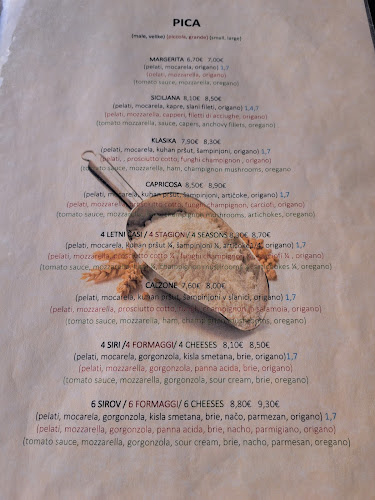 PICA
(male, velike) (piccola, grande) (small, large)
MARGERITA 6,70€ 7,00€
(pelati, mocarela, origano) 1,7
(pelati, mozzarella, origano)
(tomato sauce, mozzarella, oregano)
SICILIANA 8,10€ 8,50€
(pelati, mocarela, kapre, slani fileti, origano) 1,4,7
(pelati, mozzarella, capperi, filetti di acciughe, origano)
(tomato sauce, mozzarella, sauce, capers, anchovy filets, oregano)
KLASIKA 7,90€ 8,30€
(pelati, mocarela, kuhan pršut, šampinjoni, origano) 1,7
(pelati, , prosciuto cotto, funghi champignon, origano)
(tomato sauce, mozzarella, ham, champignon mushrooms, oregano
CAPRICOSA 8,50€ 8,90€
(pelati, mocarela, kuhan pršut, šampinjoni, artičoke, origano) 1,7
(pelati, mozzarella, prosciutto cotto, funghi champignon, carciofi, origano)
(tomato sauce, mozzarella, ham, champignon mushrooms, artichokes, oregano)
4 LETNI ČASI / 4 STAGIONI/ 4 SEASONS 8,30€ 8,70€
(pelati, mocarela, kuhan pršut ¼, šampinjoni ¼, artičoke ¼, origano) 1,7
(pelati, mozzarella, prosciutto cotto ¼, funghi champignon ¼, carciofi ¼, origano)
(tomato sauce, mozzarella, ham ¼, champignon mushrooms ¼, artichokes ¼, oregano)
CALZONE 7,60€ 8,00€
(pelati, mocarela, kuhan pršut, šampinjoni v slanici, origano) 1,7
(pelati, mozzarella, prosciutto cotto, funghi champignon in salamoia, origano)
(tomato sauce, mozzarella, ham, champignon mushrooms, oregano)
4 SIRI /4 FORMAGGI/ 4 CHEESES 8,10€ 8,50€
(pelati, mocarela, gorgonzola, kisla smetana, brie, origano)1,7
(pelati, mozzarella, gorgonzola, panna acida, brie, origano)
(tomato sauce, mozzarella, gorgonzola, sour cream, brie, oregano)
6 SIROV / 6 FORMAGGI/ 6 CHEESES 8,80€ 9,30€
(pelati, mocarela, gorgonzola, kisla smetana, brie, načo, parmezan, origano) 1,7
(pelati, mozzarella, gorgonzola, panna acida, brie, nacho, parmigiano, origano)
(tomato sauce, mozzarella, gorgonzola, sour cream, brie, nacho, parmesan, oregano)